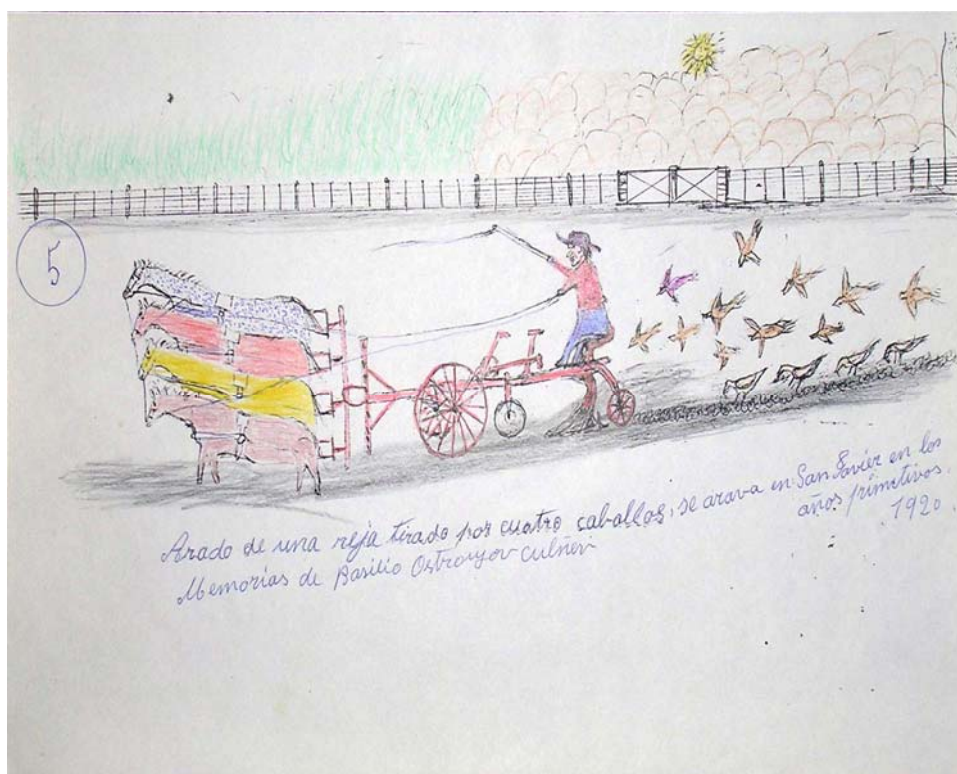 5
Arado de una reja tirado por cuatro caballos, se arava en San Javier en los
años primitivos.
1920.
Memorias de Basilio Ostroujov